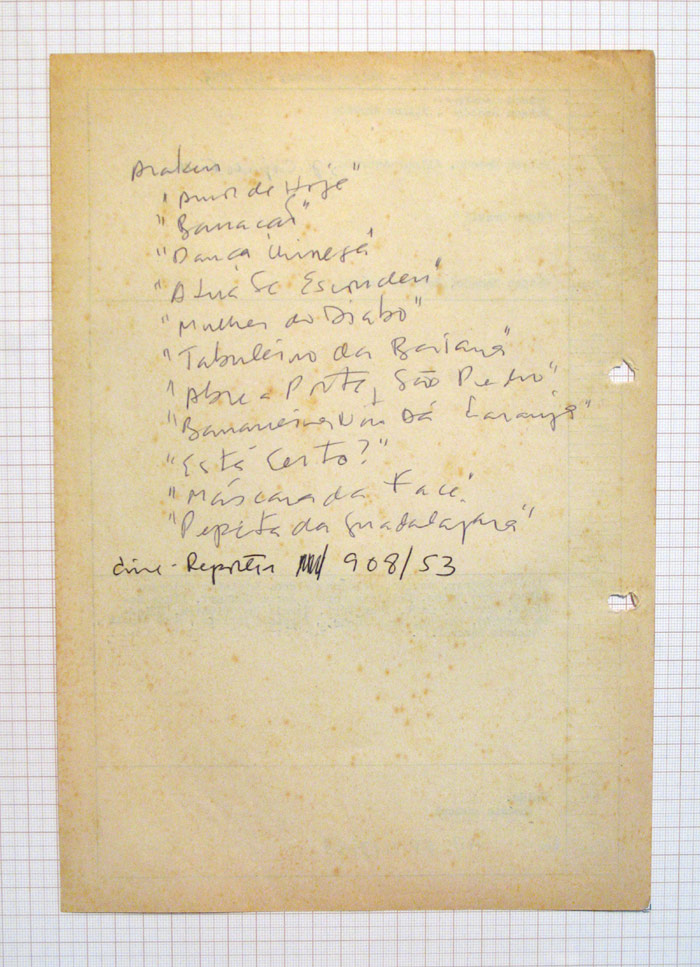 Araken
"Amor de Hoje"
"Barracas"
"Dança Chinesa"
"A Lua Se Escondeu"
"Mulher do Diabo"
"Tabuleiro da Baiana"
"Abre a Porta, São Pedro"
"Bananeira Não Dá Laranja"
"Está Certo?"
"Máscara da Face"
"Pepita da Guadalajara"
Cine-Repórter 908/53